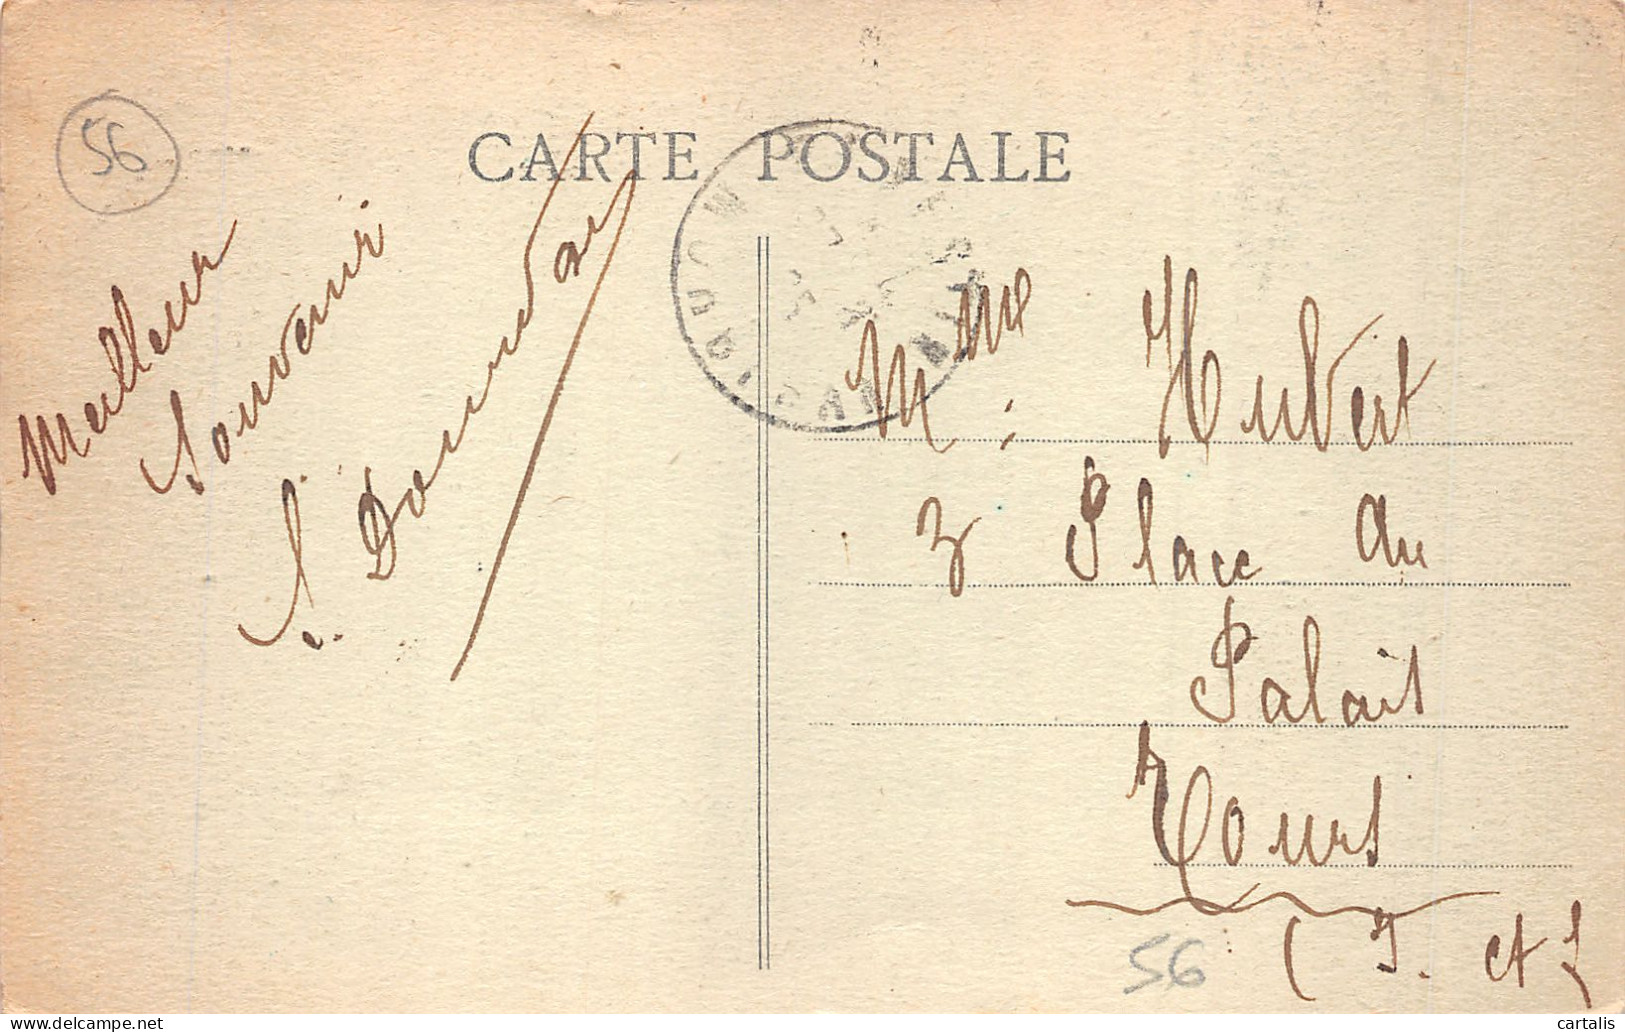 56
CARTE POSTALE
Meilleur
Souvenir
Mme Hubert
3 Place du
Palais
Tours
(I. et L
56
delcampe.net
cartalis